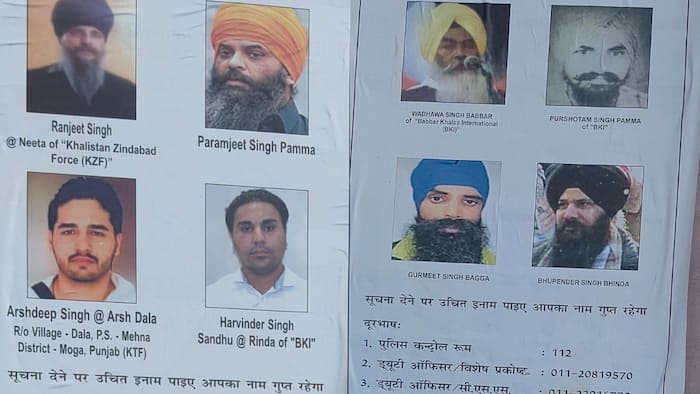 Ranjeet Singh
@ Neeta of "Khalistan Zindabad
Force (KZF)"
Paramjeet Singh Pamma
Arshdeep Singh @ Arsh Dala
R/o Village - Dala, P.S. - Mehna
District - Moga, Punjab (KTF)
Harvinder Singh
Sandhu @ Rinda of "BKI"
सूचना देने पर उचित इनाम पाइए आपका नाम गुप्त रहेगा
WADHAWA SINGH BABBAR
of "Babbar Khalsa International
(BKI)"
PURSHOTAM SINGH PAMMA
of "BKI"
GURMEET SINGH BAGGA
BHUPENDER SINGH BHINDA
सूचना देने पर उचित इनाम पाइए आपका नाम गुप्त रहेगा
दूरभाष:
1. पुलिस कन्ट्रोल रूम : 112
2. ड्यूटी ऑफिसर/विशेष प्रकोष्ठ : 011-20819570
3. ड्यूटी ऑफिसर/सी.एस.एस.